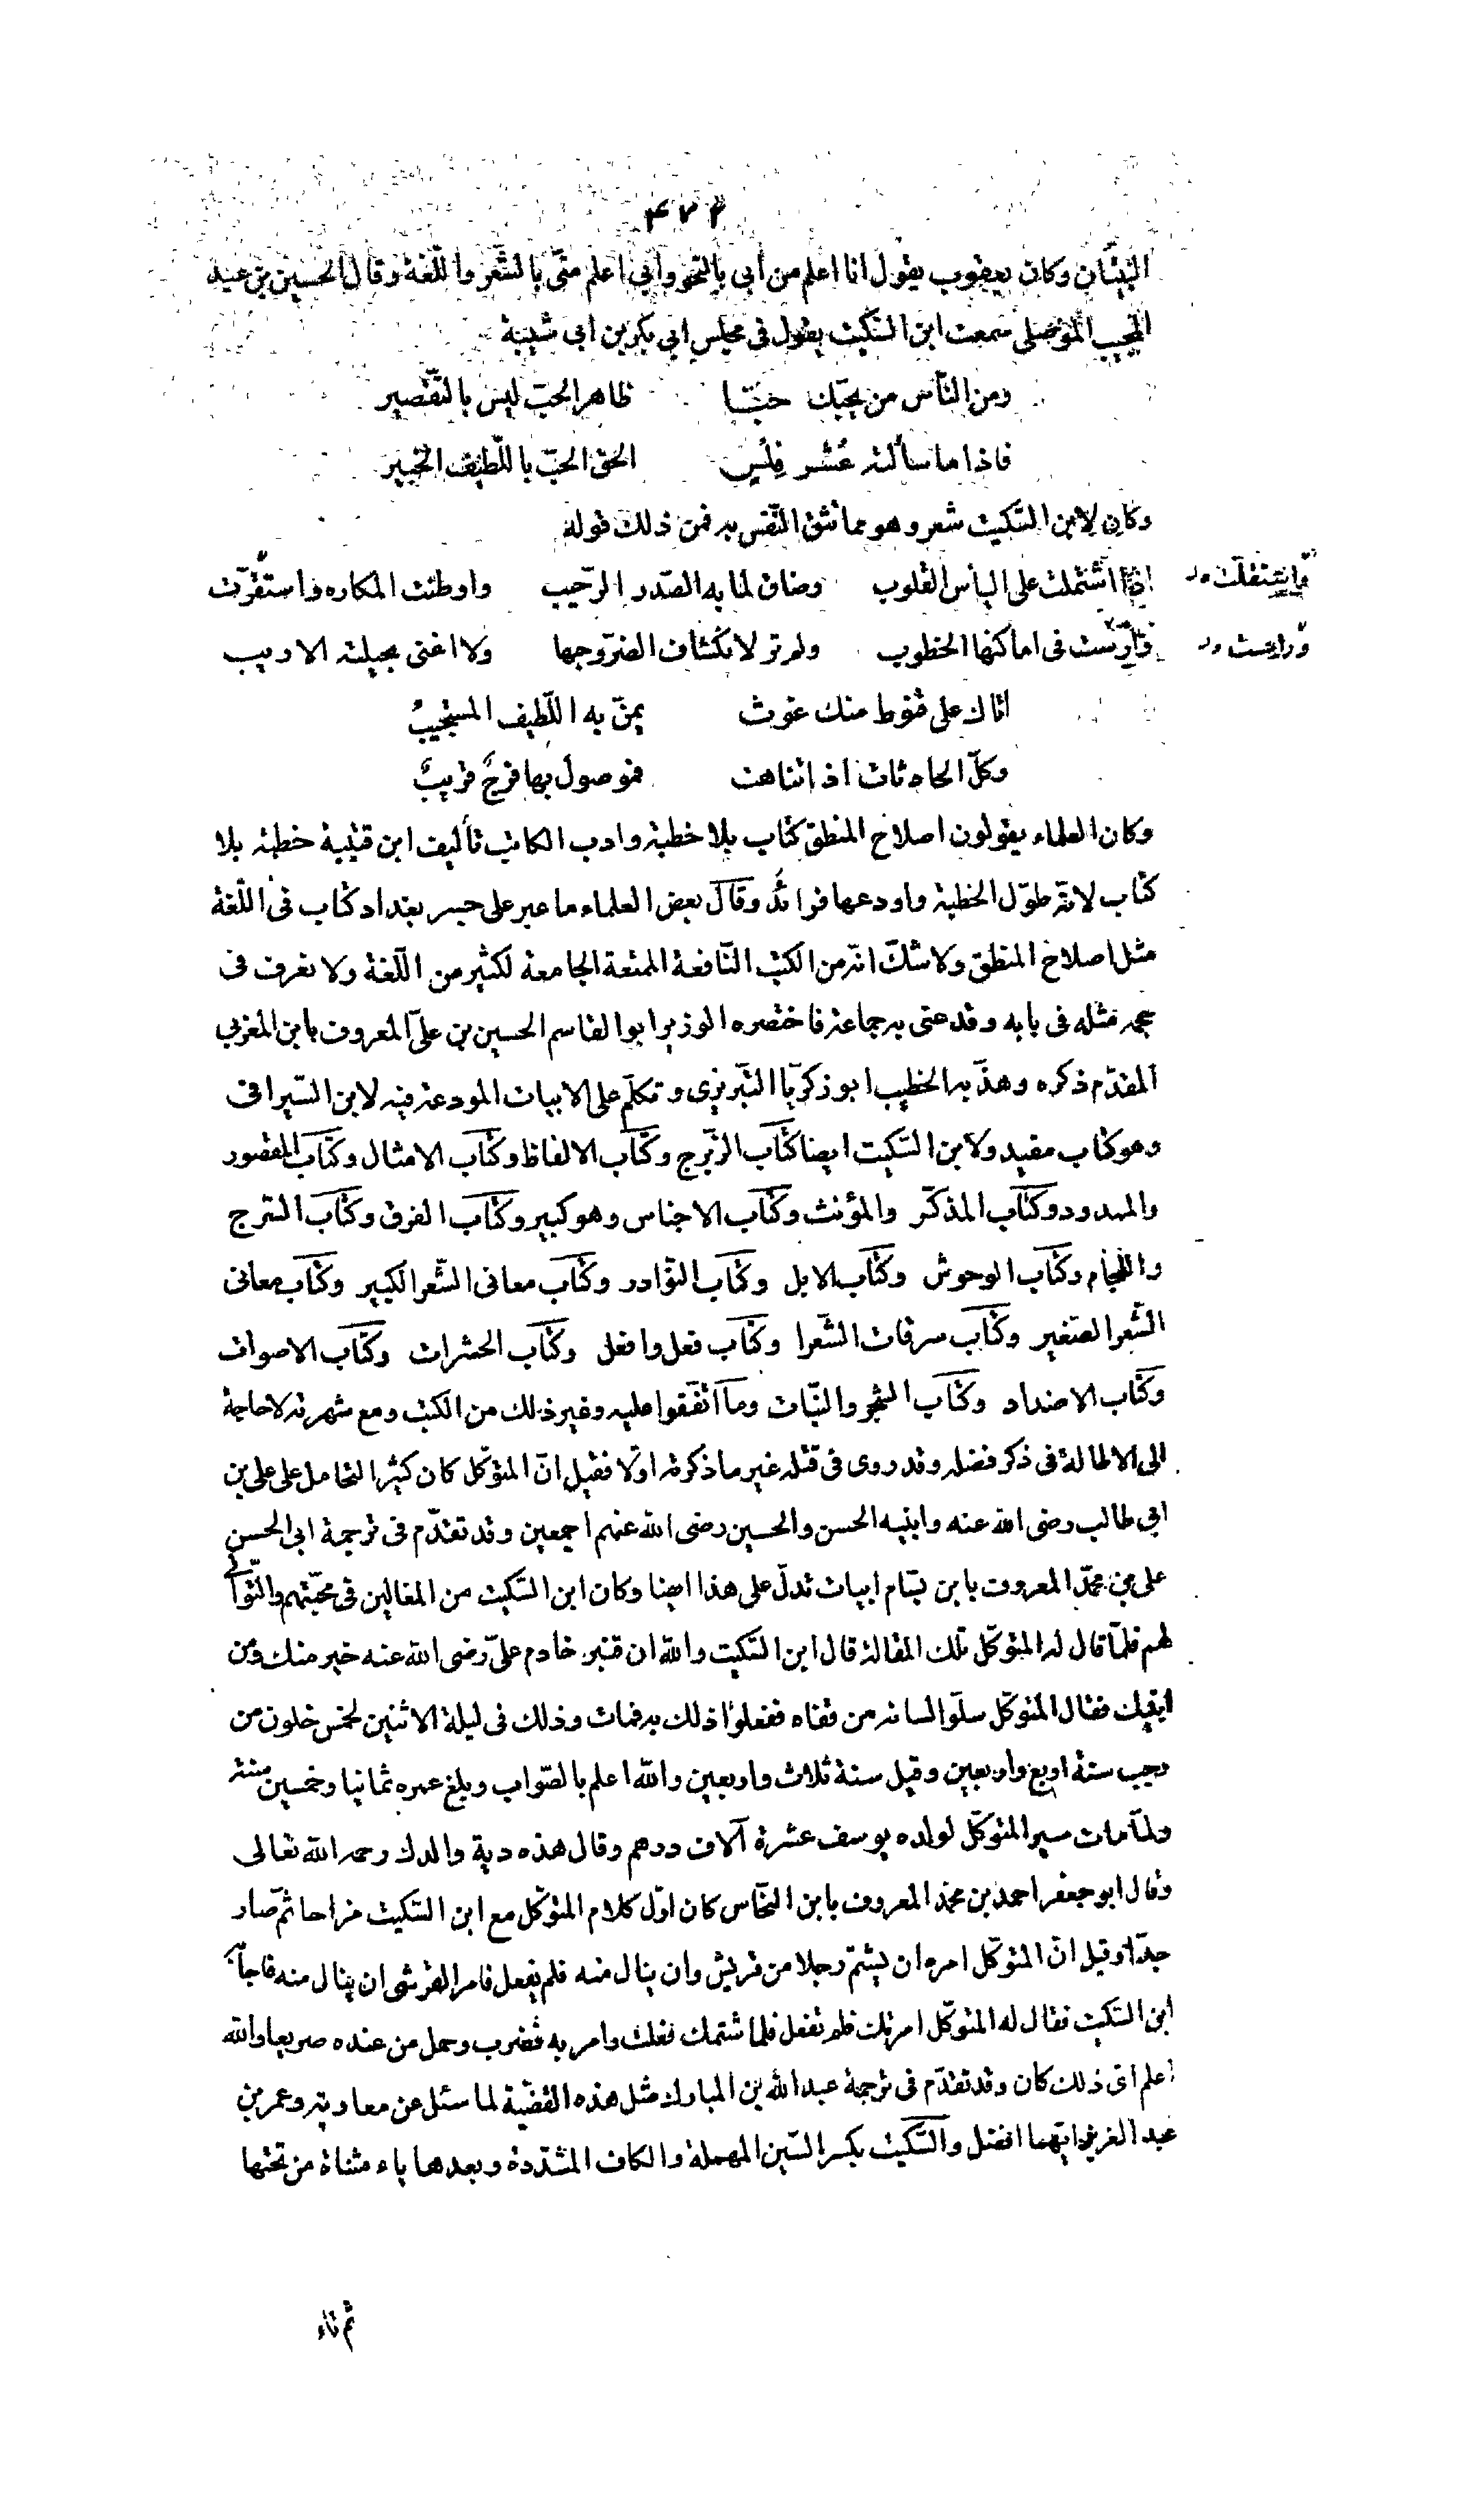 ٤٧٢
البيتان وكان يعقوب يقول انا اعلم من ابى بالنحو وابى اعلم منّى بالشّعر واللّغة وقال الحسين بن عبد
المجيب الموصلى سمعت ابن السّكيت يقول فى مجلس ابى بكر بن ابى شيبة
ومن النّاس من يحبّك حبّا ظاهر الحبّ ليس بالتّقصير
فاذا ما سألته عُشر فِلْسٍ الحق الحبّ باللّطيف الخبير
وكان لابن السّكيت شعر وهو مما تثق النّفس به فمن ذلك قوله
اذا اشتملت على اليأس القلوب وضاق لما به الصّدر الرّحيب واوطنت المكاره واستقرّت
وارست فى اماكنها الخطوب ولم تر لانكشاف الضرّ وجها ولا اغنى بحيلته الاريب
اتاك على قنوط منك غوث يمنّ به اللّطيف المستجيبُ
وكلّ الحادثات اذا تناهت فموصول بها فرجٌ قريبٌ
وكان العلماء يقولون اصلاح المنطق كتاب بلا خطبة وادب الكاتب تأليف ابن قتيبة خطبة بلا
كتاب لانّه طوّل الخطبة واودعها فوائدُ وقال بعض العلماء ما عبر على جسر بغداد كتاب فى اللّغة
مثل اصلاح المنطق ولا شكّ انّه من الكتب النّافعة الممتعة الجامعة لكثير من اللّغة ولا نعرف فى
حجمه مثله فى بابه وقد عنى به جماعة فاختصره الوزير ابو القاسم الحسين بن علىّ المعروف بابن المغربى
المقدّم ذكره وهذّبه الخطيب ابو زكريّا التّبريزى وتكلّم على الابيات المودعة فيه لابن السّيرافى
وهو كتاب مفيد ولابن السّكيت ايضا كتاب الزّبرج وكتاب الالفاظ وكتاب الامثال وكتاب المقصور
والممدود وكتاب المذكّر والمؤنث وكتاب الاجناس وهو كبير وكتاب الفرق وكتاب السّرج
واللّجام وكتاب الوحوش وكتاب الابل وكتاب النّوادر وكتاب معانى الشّعر الكبير وكتاب معانى
الشّعر الصّغير وكتاب سرقات الشّعرا وكتاب فعل وافعل وكتاب الحشرات وكتاب الاصوات
وكتاب الاضداد وكتاب الشّجر والنّبات وما اتّفقوا عليه وغير ذلك من الكتب ومع شهرته لا حاجة
الى الاطالة فى ذكر فضله وقد روى فى قتله غير ما ذكرته اوّلا فقيل انّ المتوكّل كان كثير التّحامل على على بن
ابى طالب رضى الله عنه وابنيه الحسن والحسين رضى الله عنهم اجمعين وقد تقدّم فى ترجمة ابى الحسن
على بن محمّد المعروف بابن بسّام ابيات تدلّ على هذا ايضا وكان ابن السّكيت من المغالين فى محبّتهم والتّوالى
لهم فلمّا قال له المتوكّل تلك المقالة قال ابن السّكيت والله ان قنبر خادم علىّ رضى الله عنه خير منك ومن
ابنيك فقال المتوكّل سلّوا لسانه من قفاه ففعلوا ذلك به فمات وذلك فى ليلة الاثنين لخمس خلون من
رجب سنة اربع واربعين وقيل سنة ثلاث واربعين والله اعلم بالصّواب وبلغ عمره ثمانيا وخمسين سنة
ولمّا مات سير المتوكّل لولده يوسف عشرة آلاف درهم وقال هذه دية والدك رحمه الله تعالى
وقال ابو جعفر احمد بن محمّد المعروف بابن النّحّاس كان اوّل كلام المتوكّل مع ابن السّكيت مزاحا ثمّ صار
جدّا وقيل انّ المتوكّل امره ان يشتم رجلا من قريش وان ينال منه فلم يفعل فامر القرشى ان ينال منه فاجابه
ابن السّكيت فقال له المتوكّل امرتك فلم تفعل فلما شتمك فعلت وامر به فضرب وحمل من عنده صريعا والله
اعلم اىّ ذلك كان وقد تقدّم فى ترجمة عبد الله بن المبارك مثل هذه القضيّة لما سئل عن معاوية وعمر بن
عبد العزيز ايّهما افضل والسّكيت بكسر السّين المهملة والكاف المشدّدة وبعدها ياء مثناة من تحتها
ثم تاء